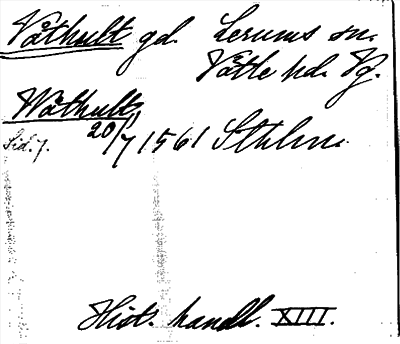 Våthult gd. Lerums sn.
Vättle hd. Vg.
Wåthult
Sid. 7. 20/7 1561 Sthlm.
Hist. handl. XIII.